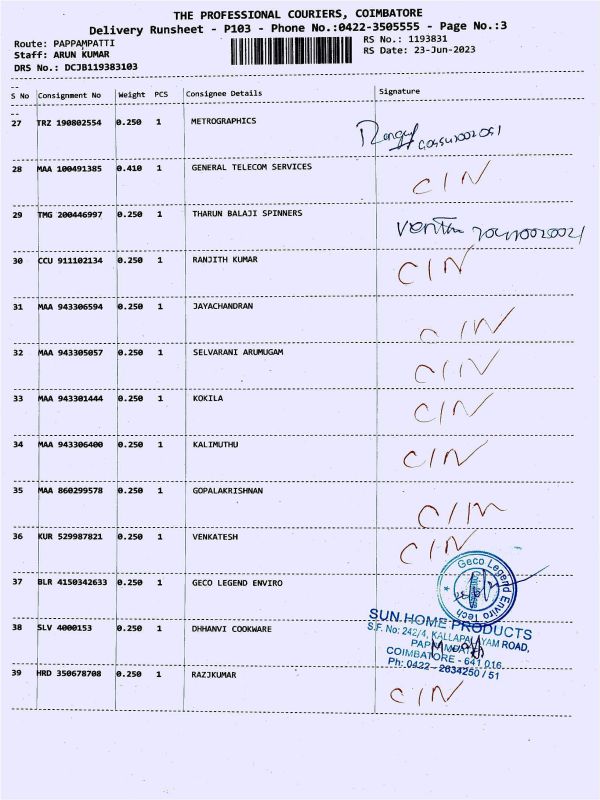 THE PROFESSIONAL COURIERS, COIMBATORE
Delivery Runsheet - P103 - Phone No.:0422-3505555 - Page No.:3
Route: PAPPAMPATTI RS No.: 1193831
Staff: ARUN KUMAR RS Date: 23-Jun-2023
DRS No.: DCJB119383103
S No Consignment No Weight PCS Consignee Details Signature
27 TRZ 190802554 0.250 1 METROGRAPHICS
28 MAA 100491385 0.410 1 GENERAL TELECOM SERVICES C/N
29 TMG 200446997 0.250 1 THARUN BALAJI SPINNERS
30 CCU 911102134 0.250 1 RANJITH KUMAR C/N
31 MAA 943306594 0.250 1 JAYACHANDRAN C/N
32 MAA 943305057 0.250 1 SELVARANI ARUMUGAM C/N
33 MAA 943301444 0.250 1 KOKILA C/N
34 MAA 943306400 0.250 1 KALIMUTHU C/N
35 MAA 860299578 0.250 1 GOPALAKRISHNAN C/N
36 KUR 529987821 0.250 1 VENKATESH C/N
37 BLR 4150342633 0.250 1 GECO LEGEND ENVIRO
Geco Legend Enviro Tech
38 SLV 4000153 0.250 1 DHHANVI COOKWARE
SUN HOME PRODUCTS
S.F. No: 242/4, KALLAPALAYAM ROAD,
COIMBATORE - 641 016.
Ph: 0422 - 2634250 / 51
39 HRD 350678708 0.250 1 RAZJKUMAR C/N